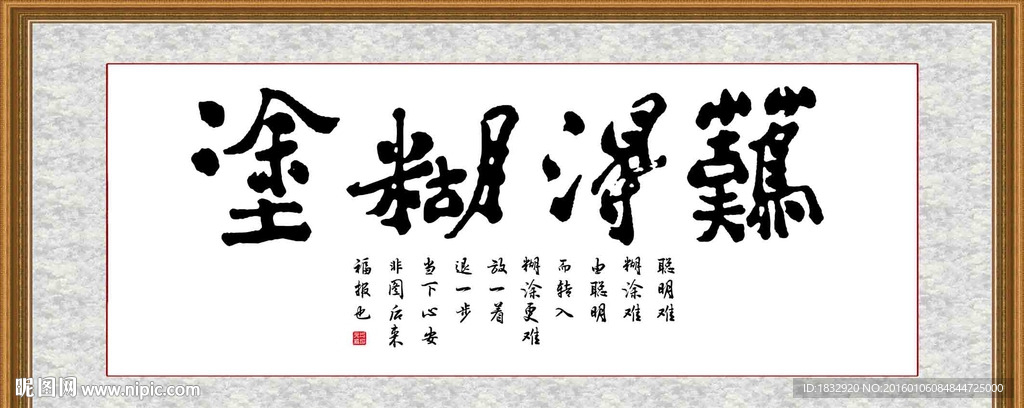 難得糊塗
聪明难
糊涂难
由聪明
而转入
糊涂更难
放一着
退一步
当下心安
非图后来
福报也
昵图网 www.nipic.com
ID:1832920 NO:20160106084844725000